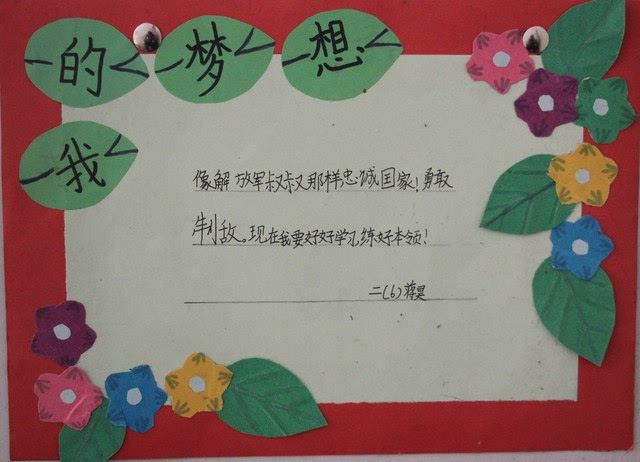 我的梦想
像解放军叔叔那样忠诚国家！勇敢
制敌。现在我要好好学习，练好本领！
二(6) 蒋昊